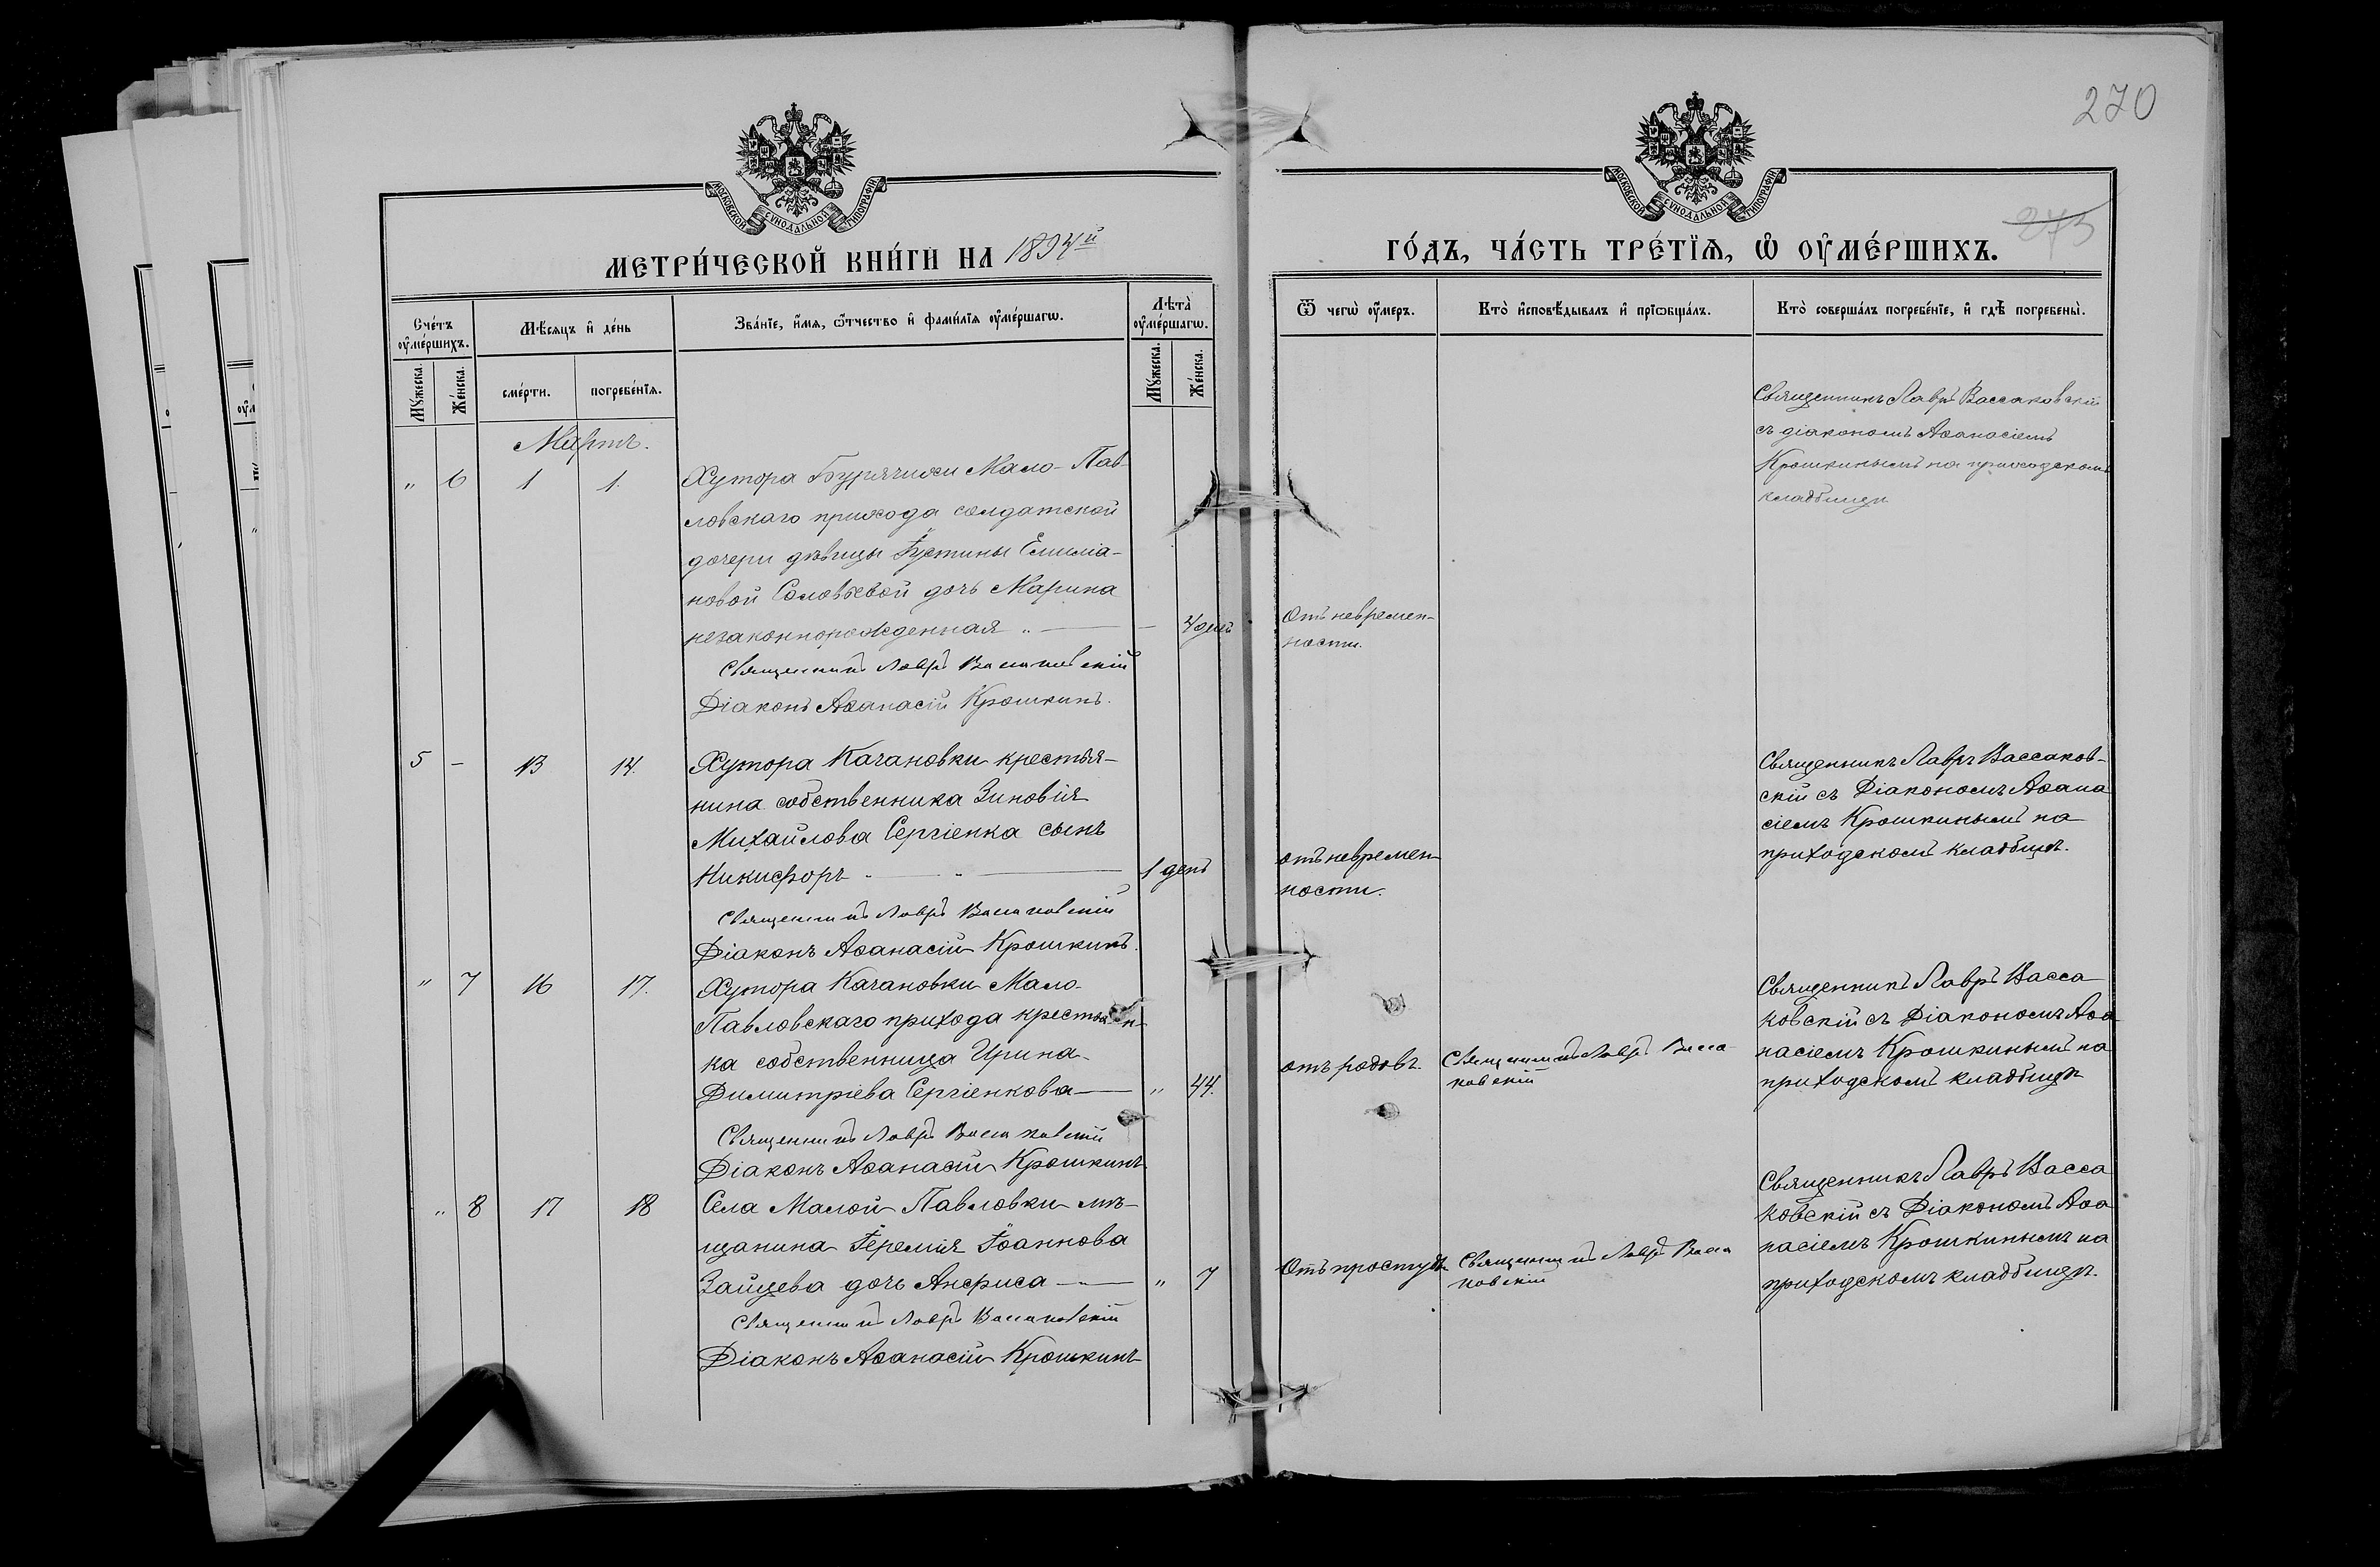 270
275
МОСКОВСКОЙ СѴНОДАЛЬНОЙ ТИПОГРАФІИ
МОСКОВСКОЙ СѴНОДАЛЬНОЙ ТИПОГРАФІИ
МЕТРИ́ЧЕСКОЙ КНИ́ГИ НА 1894й
ГО́ДЪ, ЧА́СТЬ ТРЕ́ТЇѦ, Ѡ҆ ОУ҆МЕ́РШИХЪ.
Сче́тъ оу҆ме́ршихъ.
Мꙋ́жеска.
Же́нска.
Мѣ́сѧцъ и҆ де́нь
сме́рти.
погребе́нїѧ.
Зва́нїе, и҆́мѧ, ѻ҆́тчество и҆ фами́лїѧ оу҆ме́ршагѡ.
Лѣ́та оу҆ме́ршагѡ.
Мꙋ́жеска.
Же́нска.
Ѿ чегѡ̀ оу҆́меръ.
Кто̀ и҆сповѣ́дывалъ и҆ прїѡбща́лъ.
Кто̀ соверша́лъ погребе́нїе, и҆ гдѣ̀ погребены̀.
Мартъ.
" 6 1 1.
Хутора Бурячихи Мало-Пав-
ловскаго прихода солдатской
дочери дѣвицы Іустины Емиліа-
новой Соловьевой дочь Марина
незаконнорожденная " — — 4 день
Священникъ Лавръ Вассаковскій
Діаконъ Аѳанасій Крошкинъ.
Отъ невремен-
ности.
Священникъ Лавръ Вассаковскій
съ діакономъ Аѳанасіемъ
Крошкинымъ на приходскомъ
кладбищѣ
5 - 13 14.
Хутора Качановки крестья-
нина собственника Зиновія
Михайлова Сергіенка сынъ
Никифоръ — " — 1 день
Священникъ Лавръ Вассаковскій
Діаконъ Аѳанасій Крошкинъ.
отъ невремен-
ности.
Священникъ Лавръ Вассаков-
скій съ Діакономъ Аѳана
сіемъ Крошкинымъ на
приходскомъ кладбищѣ.
" 7 16 17.
Хутора Качановки Мало-
Павловскаго прихода крестьян-
ка собственница Ирина
Димитріева Сергіенкова — " 44.
Священникъ Лавръ Вассаковскій
Діаконъ Аѳанасій Крошкинъ.
отъ родовъ.
Священникъ Лавръ Васса
ковскій
Священникъ Лавръ Васса
ковскій съ Діакономъ Аѳа
насіемъ Крошкинымъ на
приходскомъ кладбищѣ
" 8 17 18
Села Малой Павловки мѣ-
щанина Іеремія Іоаннова
Зайцева дочь Анфиса — " 7
Священникъ Лавръ Вассаковскій
Діаконъ Аѳанасій Крошкинъ
Отъ простуды
Священникъ Лавръ Васса
ковскій
Священникъ Лавръ Васса
ковскій съ Діакономъ Аѳа
насіемъ Крошкинымъ на
приходскомъ кладбищѣ.